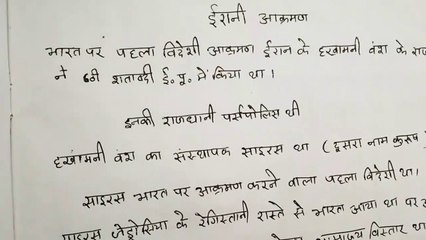 ईरानी आक्रमण
भारत पर पहला विदेशी आक्रमण ईरान के हखामनी वंश के
ने 6वी शताब्दी ई. पू. में किया था।
इनकी राजधानी पर्सपोलिस थी
हखामनी वंश का संस्थापक साइरस था (दूसरा नाम कुरूष
साइरस भारत पर आक्रमण करने वाला पहला विदेशी था।
साइरस जेड्रोसिया के रेगिस्तानी रास्ते से भारत आया था पर
साम्राज्य विस्तार था